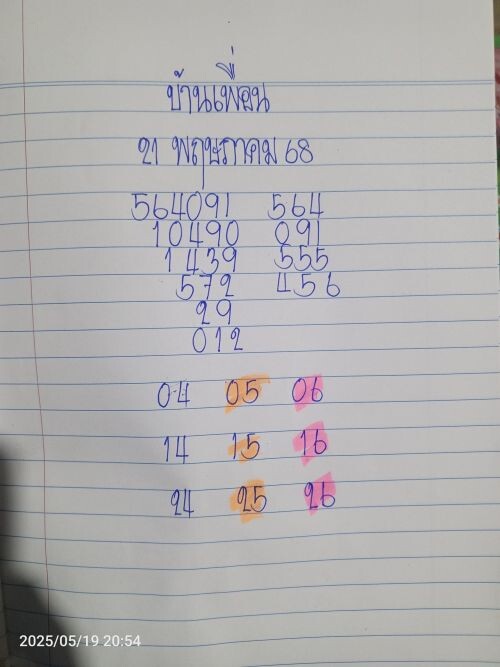 บ้านเพื่อน
21 พฤษภาคม 68
564091 564
10490 091
1439 555
572 456
29
012
04 05 06
14 15 16
24 25 26
2025/05/19 20:54